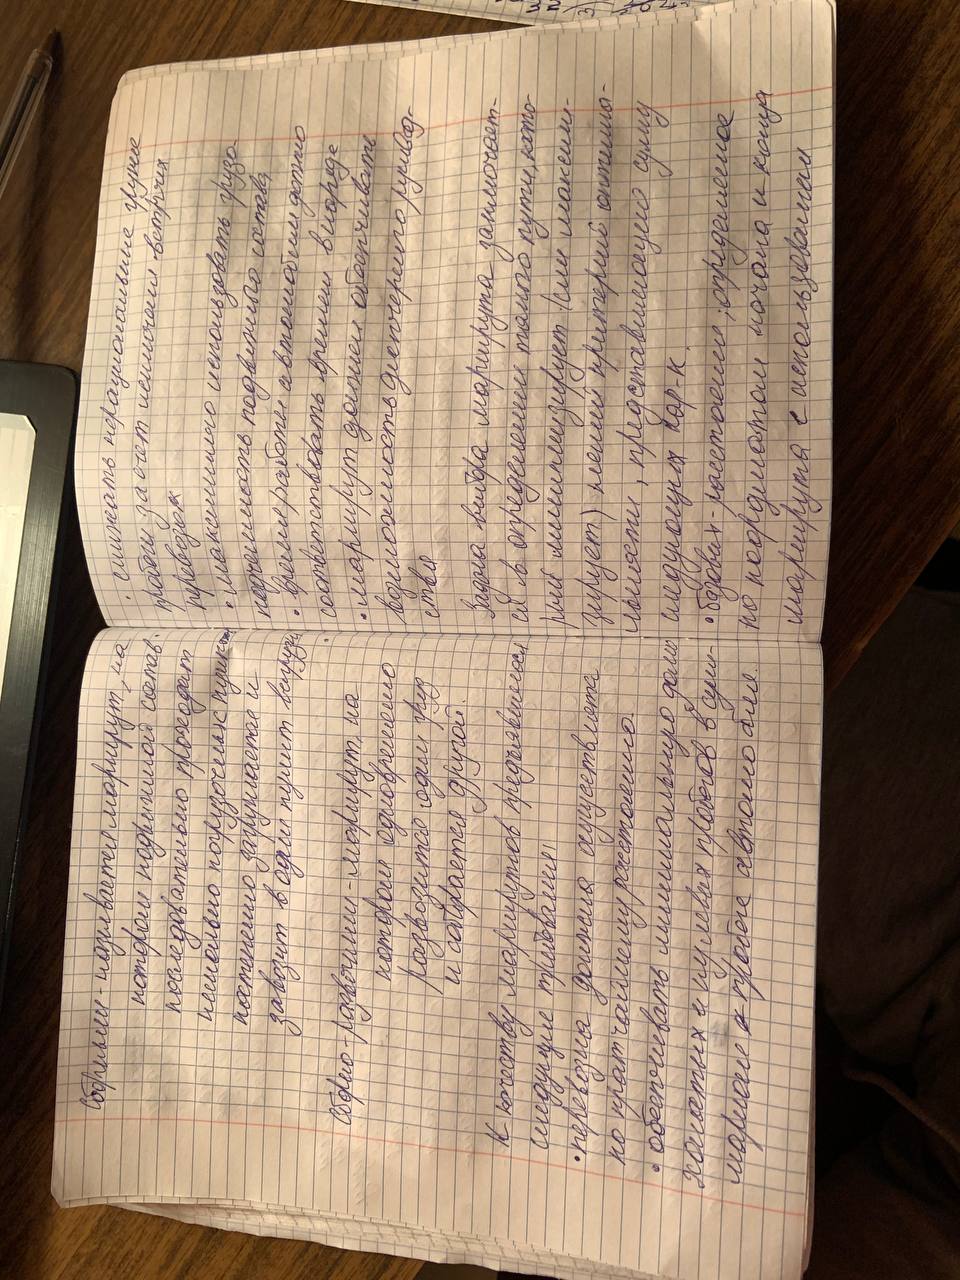 Сборным - называется маршрут, на
котором подвижной состав
последовательно проходит
несколько погрузочных пунктов
постепенно загружается и
завозит в один пункт выгрузки.
Сборно-развозочный - маршрут на
котором одновременно
развозится один груз
и собирается другой.
К качеству маршрутов предъявляются
следующие требования:
• перевозка должна осуществляться
по кратчайшему расстоянию.
• обеспечивать минимальную долю
холостых и нулевых пробегов в сум-
марном пробеге автомобиля.
• снижать нерациональные груже
пробеги за счет исключения встречных
перевозок
• максимально использовать грузо
подъемность подвижного состава,
• время работы автомобиля должно
соответствовать времени в наряде
• маршрут должен обеспечивать
возможность диспетчерского руковод-
ства
Задача выбора маршрута заключает-
ся в определении такого пути, кото-
рый минимизирует (или максими-
зирует) некий критерий оптима-
льности, представляющего сумму
следующих хар-к.
• вдоль - расстояния, определяемое
по координатам начала и конца
маршрута с использованием